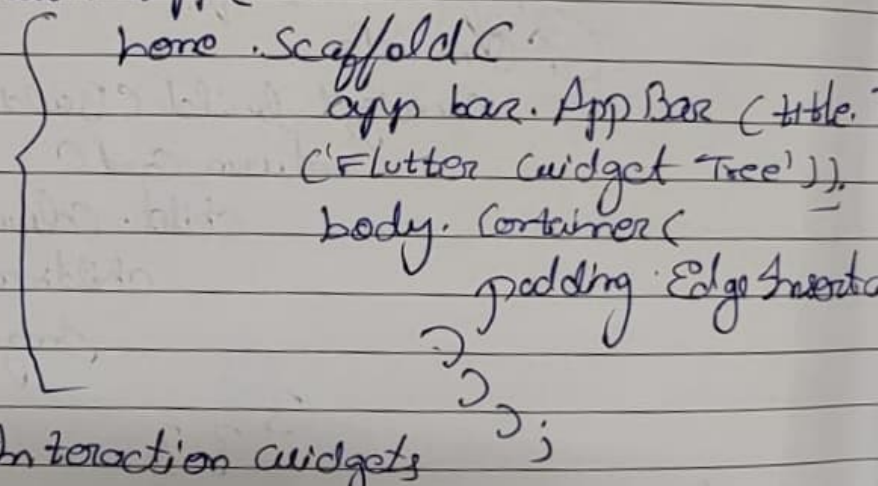 home . Scaffold (
app bar . AppBar ( title.
('Flutter Widget Tree')),
body . Container (
padding . EdgeInsets
)
)
) ;
Interaction widgets